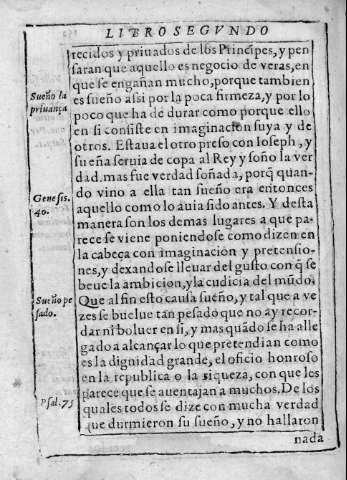 LIBRO SEGVNDO
recidos y priuados de los Principes, y pen
saran que aquello es negocio de veras, en
que se engañan mucho, porque tambien
Sueño la
priuança
es sueño assi por la poca firmeza, y por lo
poco que ha de durar como porque ello
en si consiste en imaginacion suya y de
otros. Estaua el otro preso con Ioseph, y
su eña seruia de copa al Rey y soño la ver
dad. mas fue verdad soñada, porq̃ quan-
Genesis.
40.
do vino a ella tan sueño era entonces
aquello como lo auia sido antes. Y desta
manera son los demas lugares a que pa-
rece se viene poniendose como dizen en
la cabeça con imaginacion y pretensio-
nes, y dexandose lleuar del gusto con q̃ se
beue la ambicion, y la cudicia del mũdo.
Sueño pe
sado.
Que al fin esto causa sueño, y tal que a ve
zes se buelue tan pesado que no ay recor-
dar ni boluer en si, y mas quãdo se ha alle
gado a alcançar lo que pretendian como
es la dignidad grande, el oficio honroso
en la republica o la riqueza, con que les
Psal. 75
parece que se auentajan a muchos. De los
quales todos se dize con mucha verdad
que durmieron su sueño, y no hallaron
nada